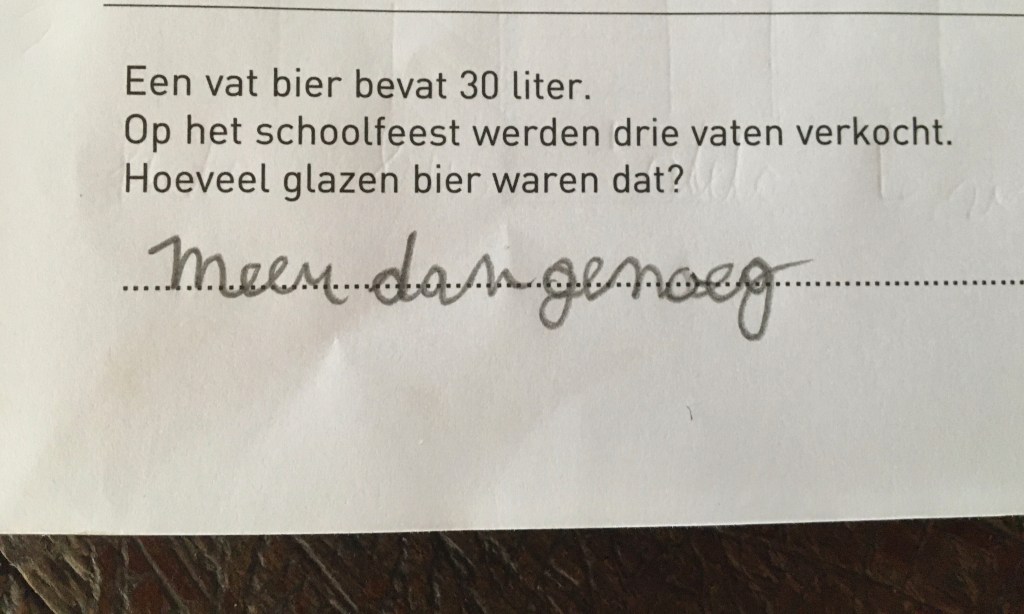 Een vat bier bevat 30 liter.
Op het schoolfeest werden drie vaten verkocht.
Hoeveel glazen bier waren dat?
Meer dan genoeg